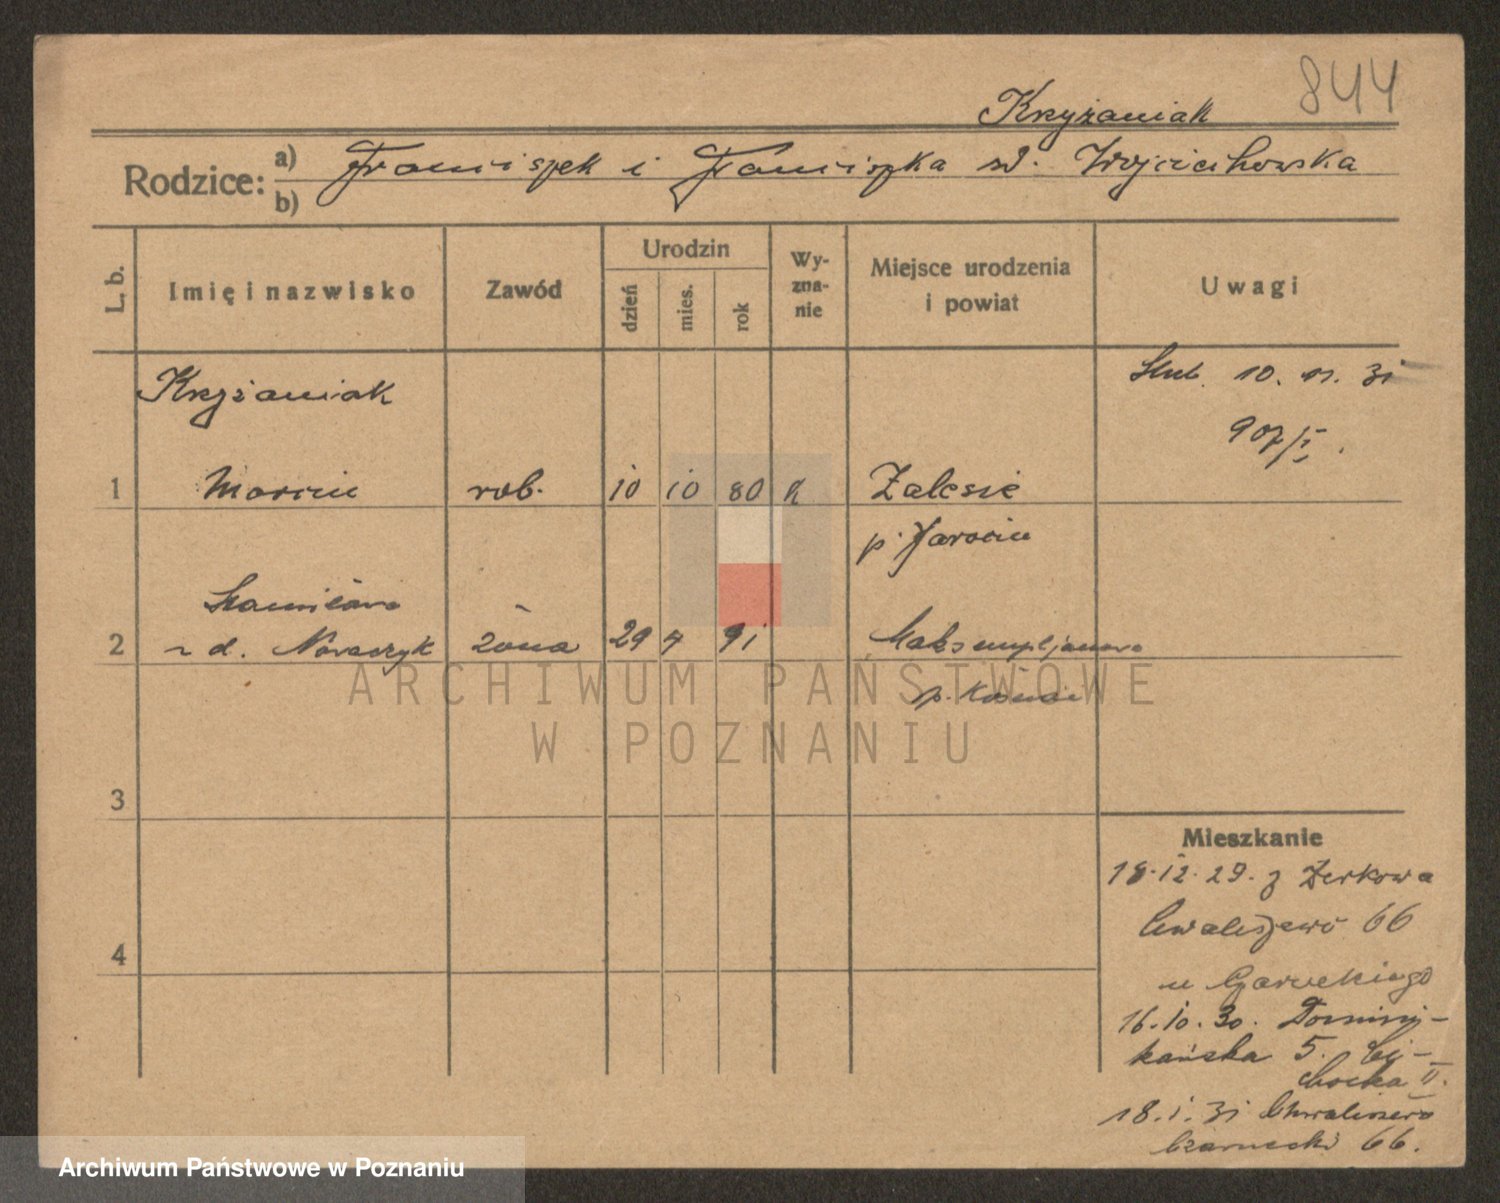 844
Krzyżaniak
Rodzice: a) b) Franciszek i Franciszka zd. Wojciechowska
L. b.
Imię i nazwisko
Zawód
Urodzin
dzień
mies.
rok
Wy-
zna-
nie
Miejsce urodzenia
i powiat
Uwagi
Krzyżaniak
Ślub 10. 11. 31
907/I.
1 Marcin rob. 10 10 80 k Zalesie
p. Jarocin
Stanisława
2 z d. Nowaczyk żona 29 4 91 Maksymiljanowo
p. Kościan
3
Mieszkanie
18.12.29. z Żerkowa
Chwaliszewo 66
4
u Czarneckiego
16.10.30. Domini-
kańska 5. Cy-
bocka II.
18.1.31 Chwaliszewo
Czarnecki 66.
ARCHIWUM PAŃSTWOWE
W POZNANIU
Archiwum Państwowe w Poznaniu